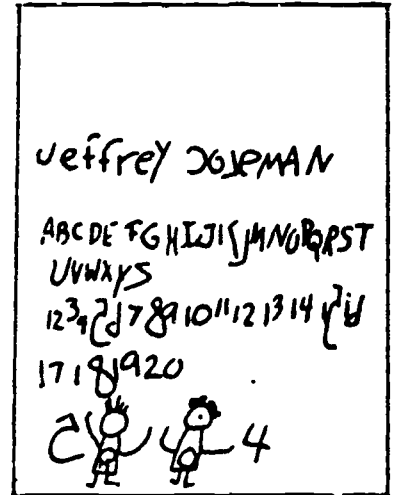 Jeffrey
ABCDE FGHIJKLMNOPQRST
UVWXYS
123 4 5 6 7 8 9 10 11 12 13 14 15 16
17 18 19 20
5 4